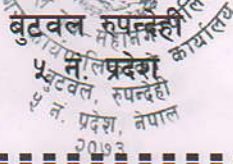 बुटवल रुपन्देही
५ नं. प्रदेश
कार्यालय
बुटवल, रुपन्देही
५ नं. प्रदेश, नेपाल
२०७३